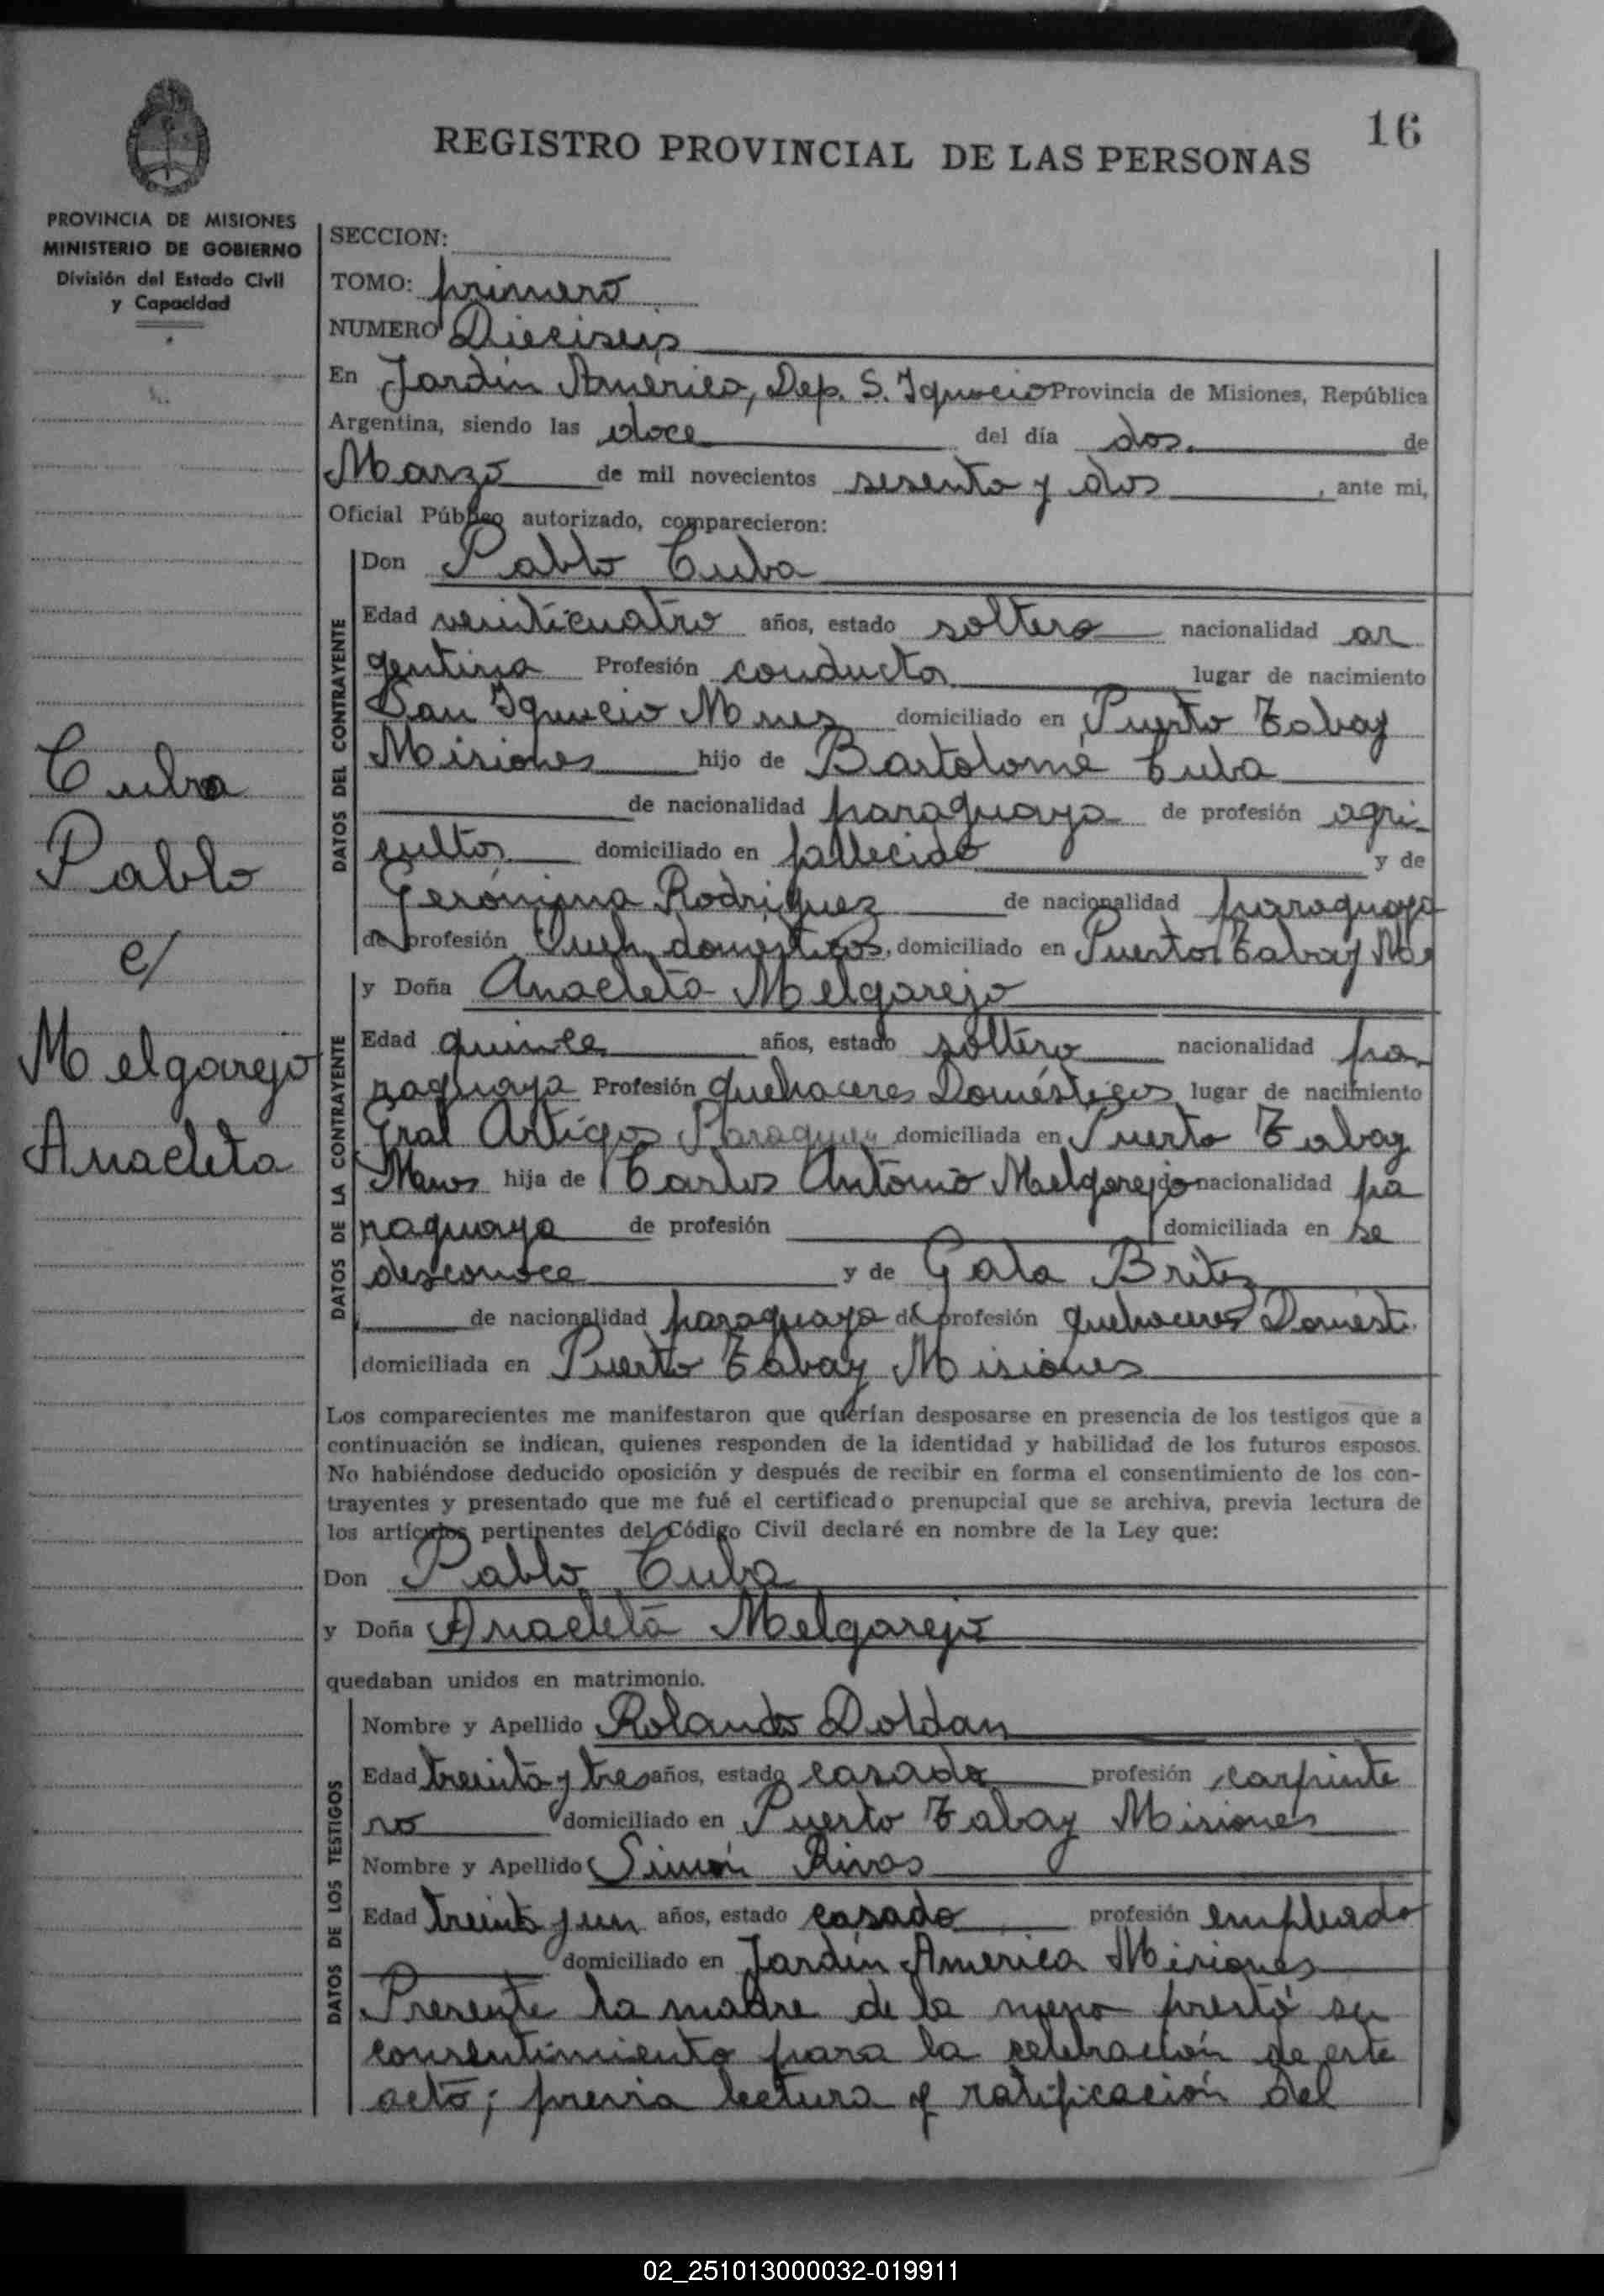 16
REGISTRO PROVINCIAL DE LAS PERSONAS
PROVINCIA DE MISIONES
MINISTERIO DE GOBIERNO
División del Estado Civil
y Capacidad
Cuba
Pablo
c/
Melgarejo
Anacleta
SECCION:
TOMO: primero
NUMERO Dieciseis
En Jardín América, Dep. S. Ignacio Provincia de Misiones, República
Argentina, siendo las doce del día dos de
Marzo de mil novecientos sesenta y dos, ante mi,
Oficial Público autorizado, comparecieron:
DATOS DEL CONTRAYENTE
Don Pablo Cuba
Edad veinticuatro años, estado soltero nacionalidad ar
gentina Profesión conductor lugar de nacimiento
San Ignacio Mnes domiciliado en Puerto Tabay
Misiones hijo de Bartolomé Cuba
de nacionalidad paraguaya de profesión agri-
cultor domiciliado en fallecido y de
Gerónima Rodriguez de nacionalidad paraguaya
de profesión Queh. domésticos, domiciliado en Puerto Tabay
DATOS DE LA CONTRAYENTE
y Doña Anacleta Melgarejo
Edad quince años, estado soltera nacionalidad pa-
raguaya Profesión quehaceres Domésticos lugar de nacimiento
Gral Artigas Paraguay domiciliada en Puerto Tabay
Mnes hija de Carlos Antonio Melgarejo de nacionalidad pa
raguaya de profesión domiciliada en se
desconoce y de Gala Britez
de nacionalidad paraguaya de profesión quehaceres Domest.
domiciliada en Puerto Tabay Misiones
Los comparecientes me manifestaron que querían desposarse en presencia de los testigos que a
continuación se indican, quienes responden de la identidad y habilidad de los futuros esposos.
No habiéndose deducido oposición y después de recibir en forma el consentimiento de los con-
trayentes y presentado que me fué el certificado prenupcial que se archiva, previa lectura de
los artículos pertinentes del Código Civil declaré en nombre de la Ley que:
Don Pablo Cuba
y Doña Anacleta Melgarejo
quedaban unidos en matrimonio.
DATOS DE LOS TESTIGOS
Nombre y Apellido Rolando Doldan
Edad treinta y tres años, estado casado profesión carpinte
ro domiciliado en Puerto Tabay Misiones
Nombre y Apellido Simón Rivas
Edad treinta y un años, estado casado profesión empleado
domiciliado en Jardín America Misiones
Presente la madre de la prestó su
consentimiento para la celebración de este
acto; previa lectura y ratificación del
02_251013000032-019911